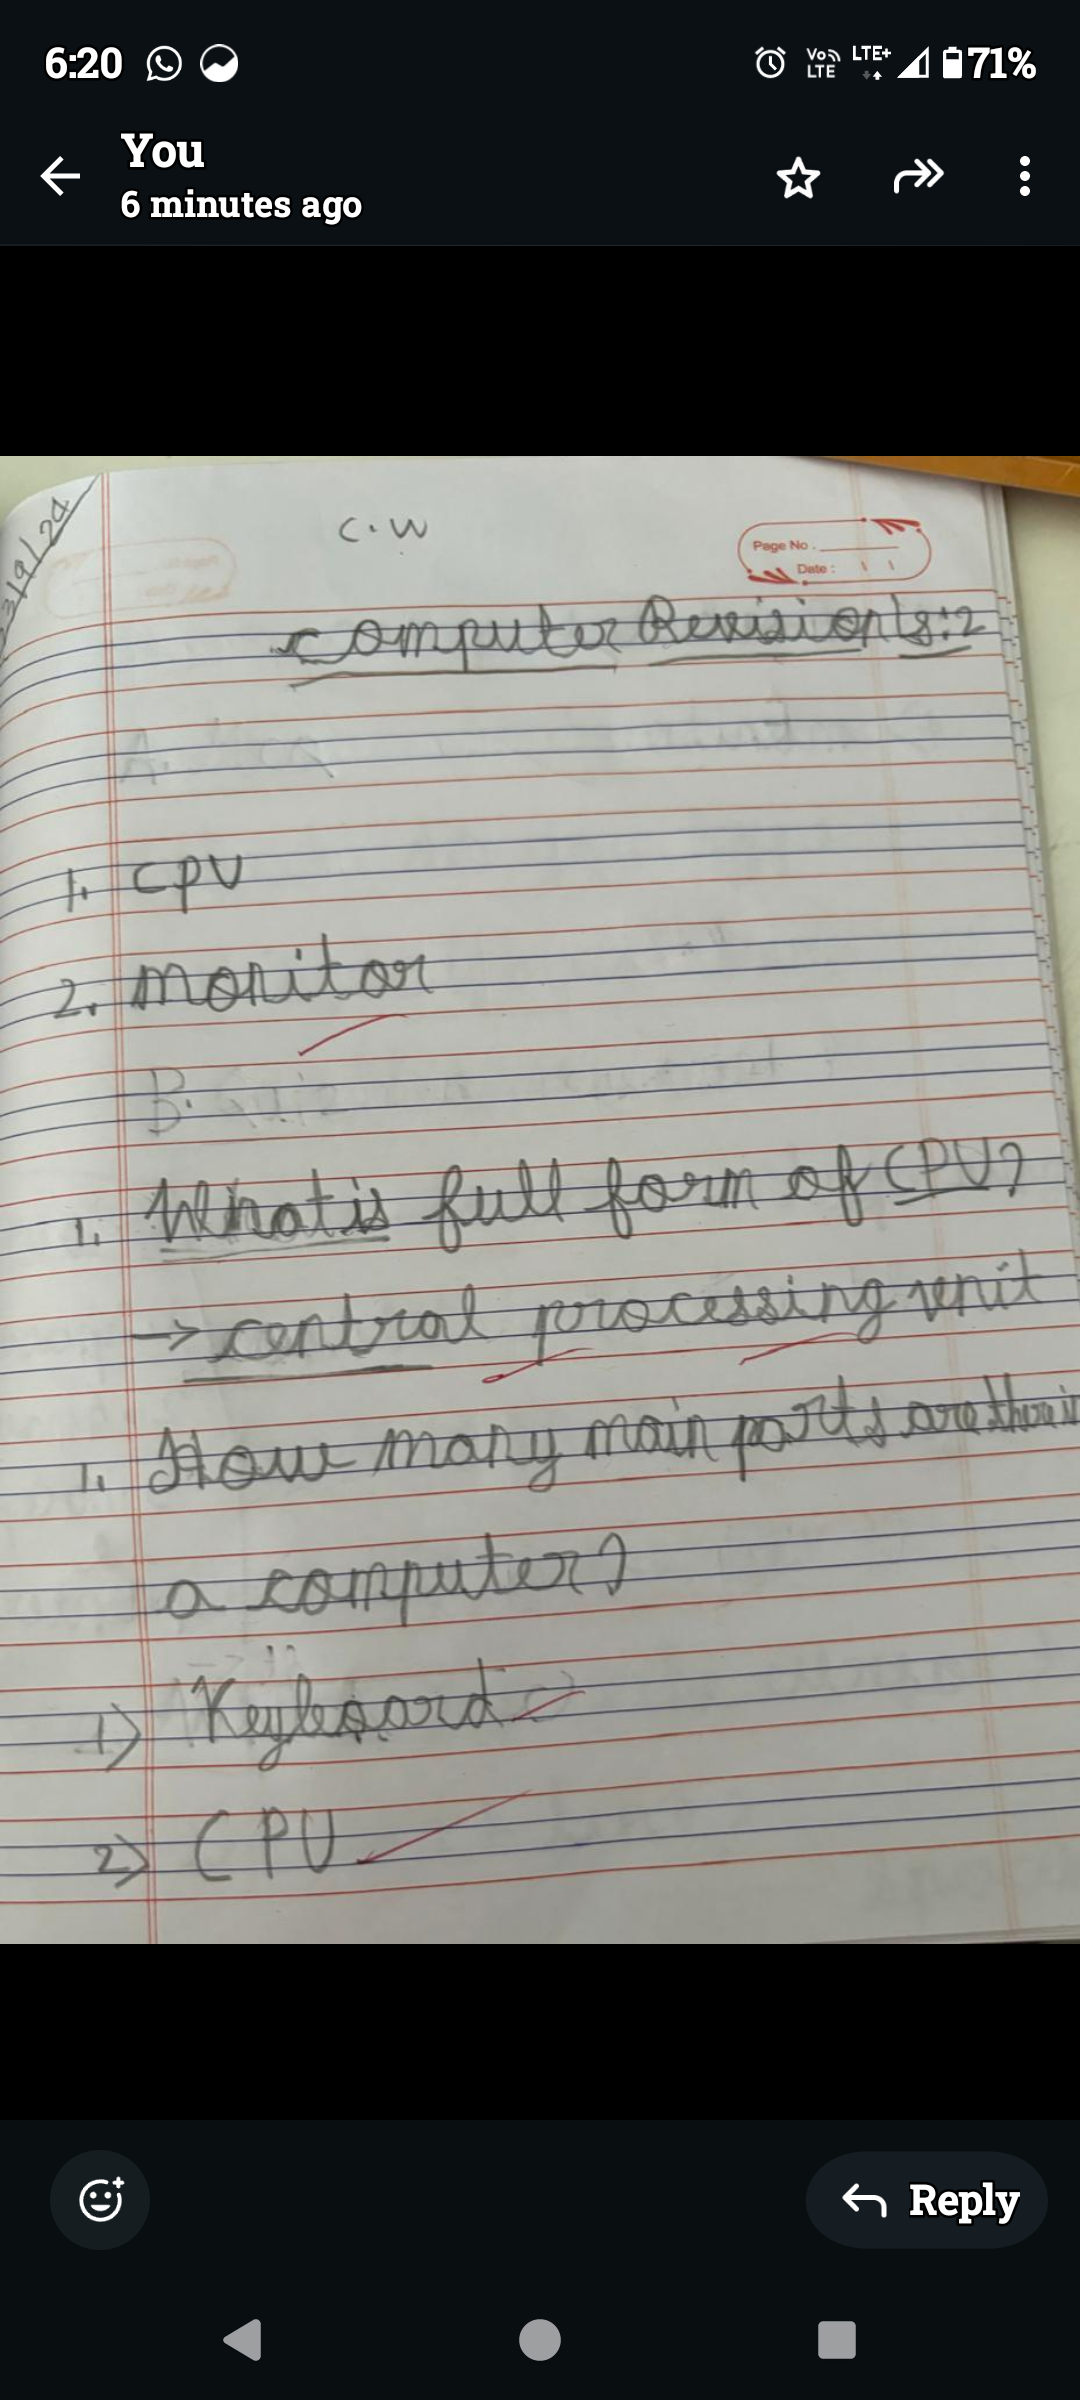 6:20
Vo LTE
LTE+
71%
You
6 minutes ago
C.W
Page No.
Date :
computer Revision Ls:2
1. CPU
2. monitor
1. What is full form of CPU?
→ central processing unit
1. How many main parts are there in
a computer?
1) Keyboard
2) CPU
Reply